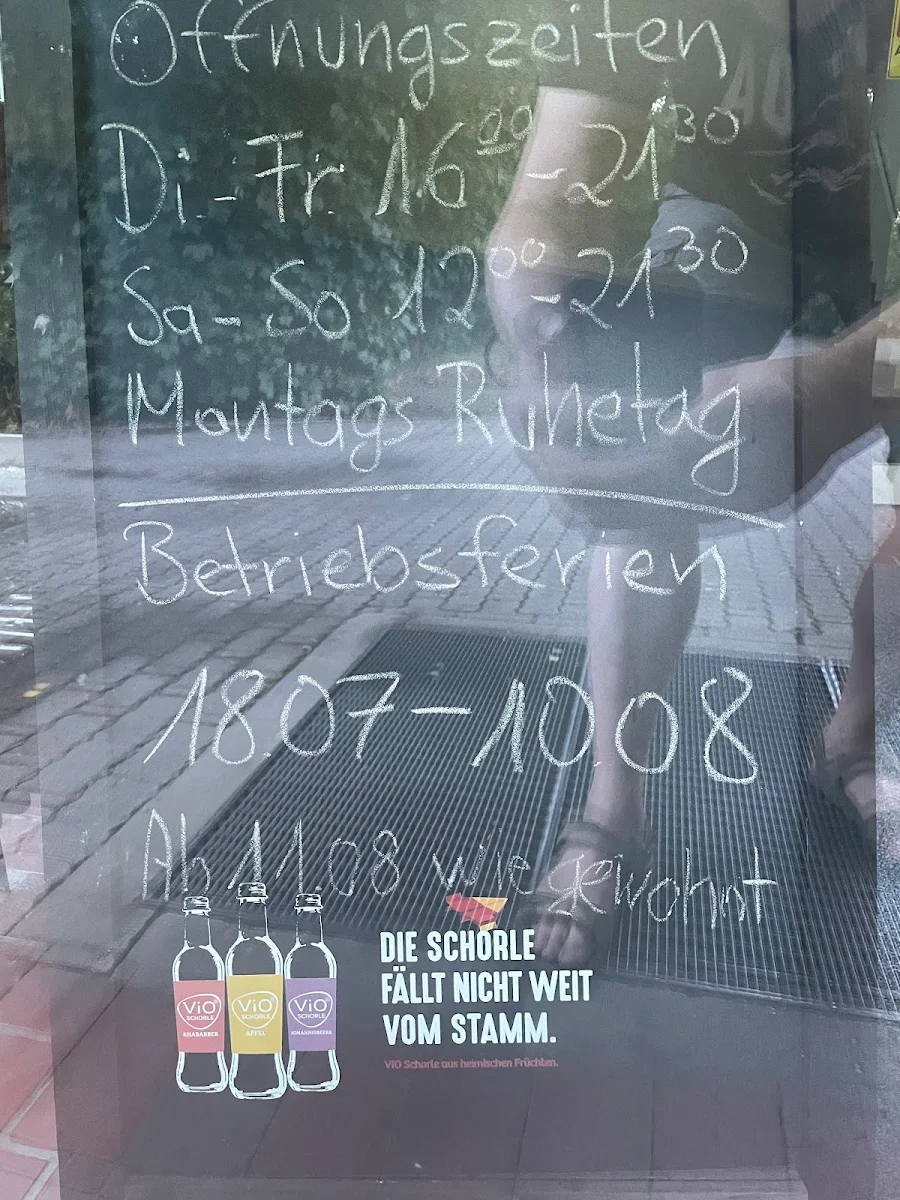 Öffnungszeiten
Di.-Fr. 16⁰⁰-21³⁰
Sa-So 12⁰⁰-21³⁰
Montags Ruhetag
Betriebsferien
18.07-10.08
Ab 11.08 wie gewohnt
DIE SCHORLE
FÄLLT NICHT WEIT
VOM STAMM.
ViO Schorle aus heimischen Früchten.
ViO SCHORLE RHABARBER
ViO SCHORLE APFEL
ViO SCHORLE JOHANNISBEERE